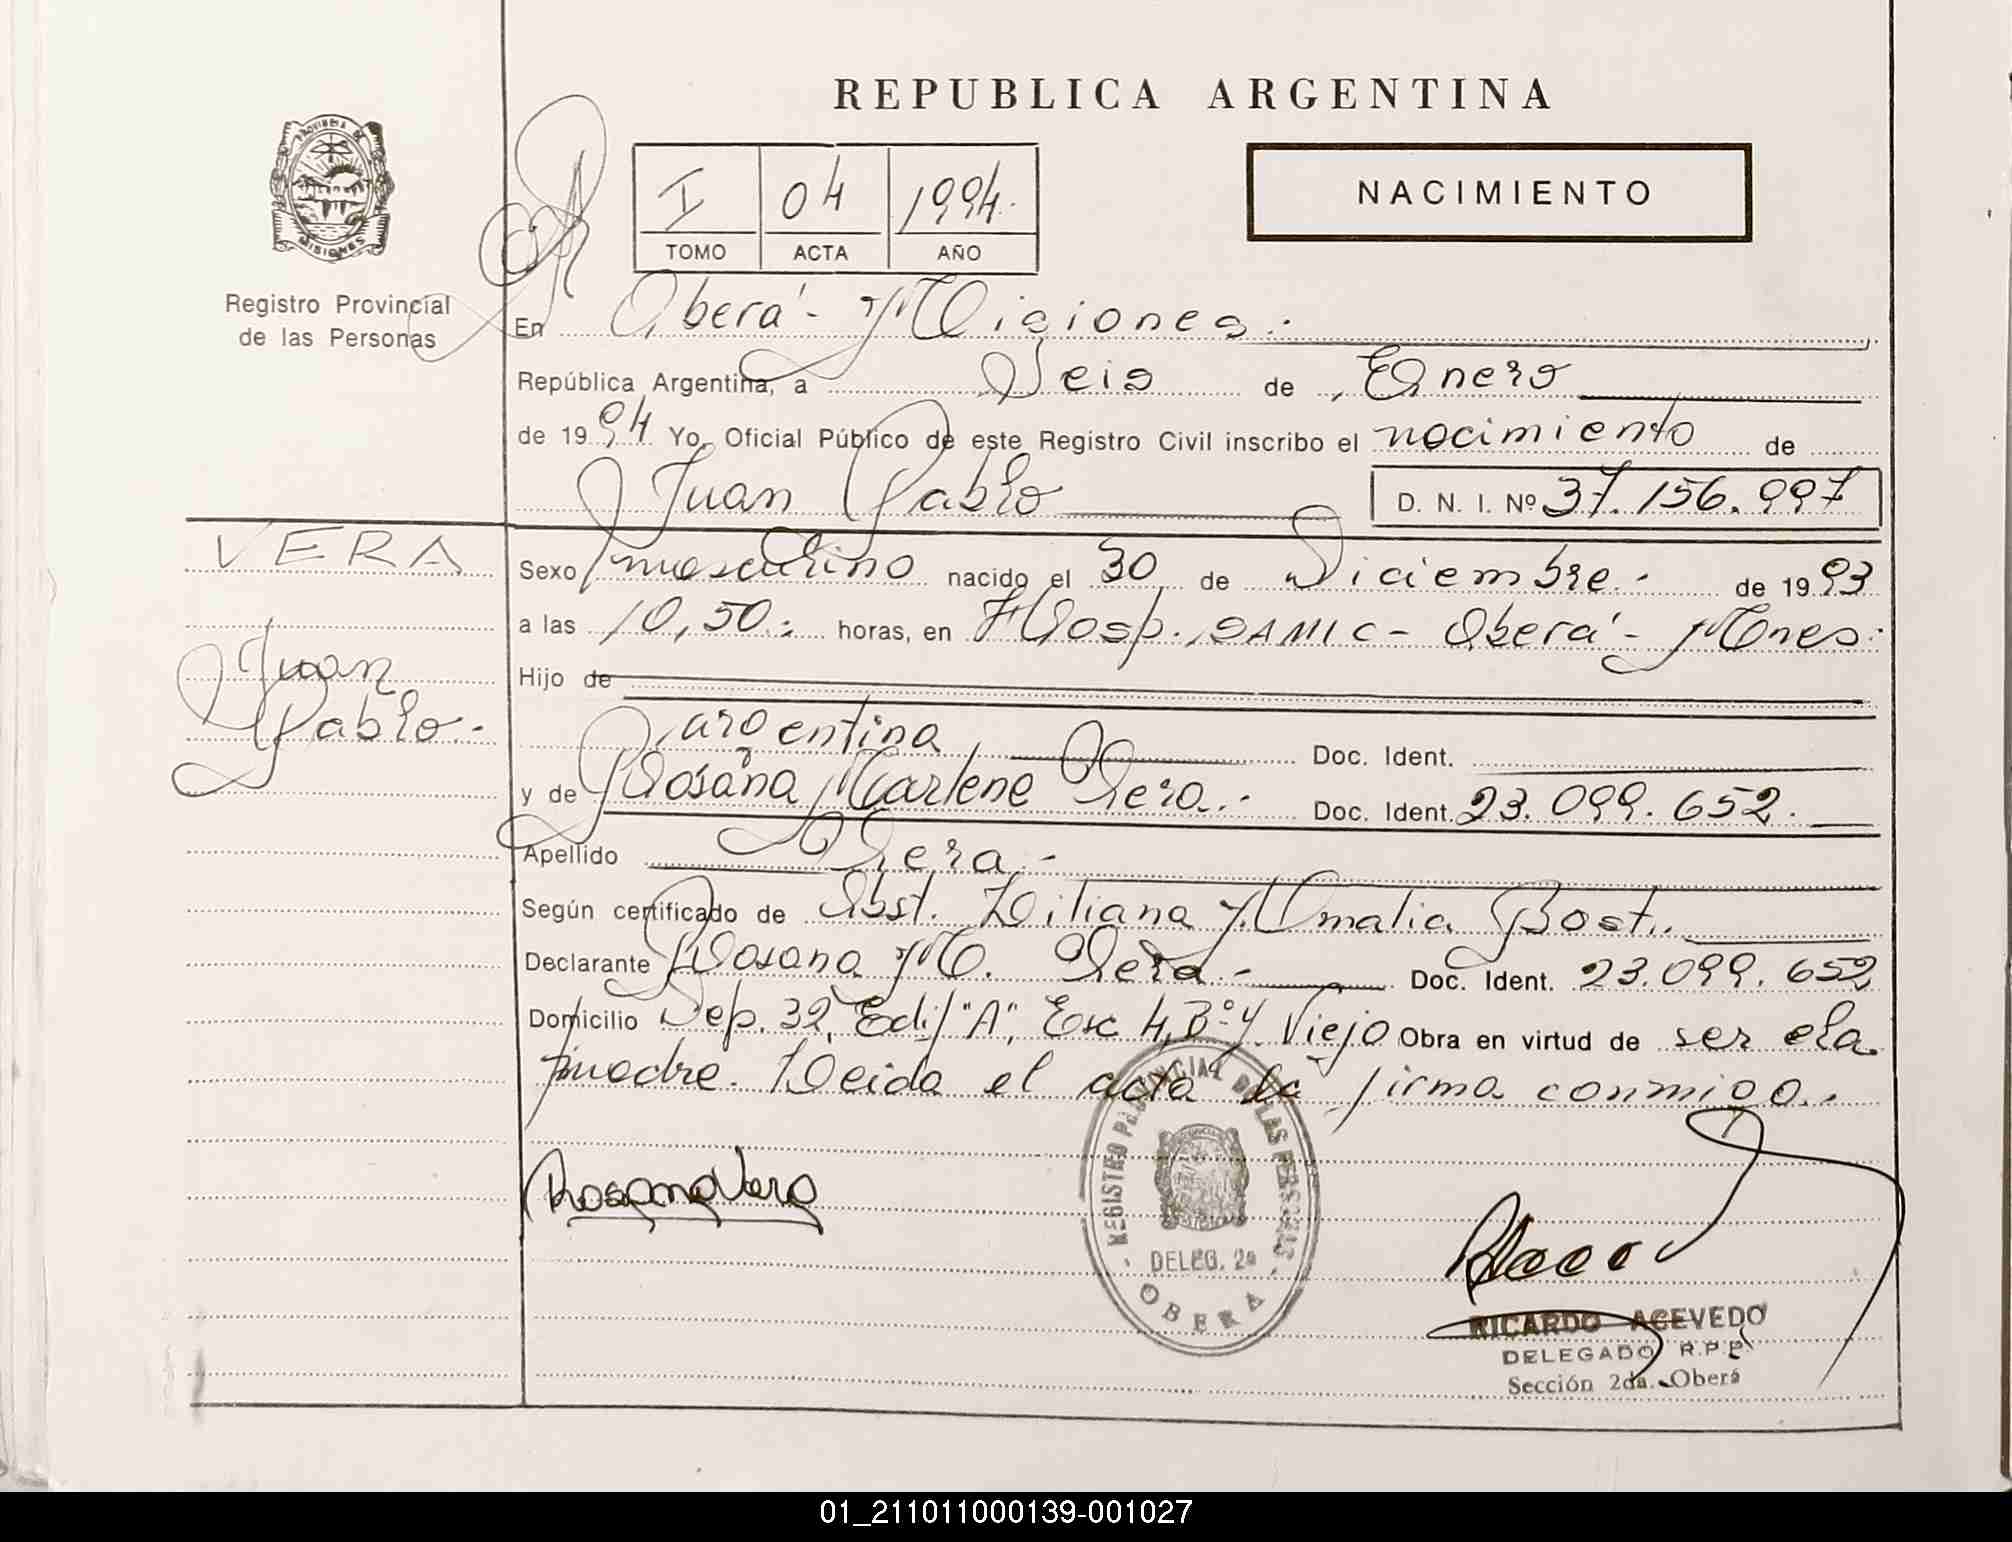 REPUBLICA ARGENTINA
PROVINCIA DE
MISIONES
Registro Provincial
de las Personas
I 04 1994.
TOMO ACTA AÑO
NACIMIENTO
En Oberá - Misiones.
República Argentina, a Seis de Enero
de 1994 Yo, Oficial Público de este Registro Civil inscribo el nacimiento de
Juan Pablo D. N. I. Nº 37.156.997
VERA
Juan
Pablo.-
Sexo masculino nacido el 30 de Diciembre.- de 1993
a las 10,50.- horas, en Hosp. SAMIC - Oberá - Mnes.
Hijo de
argentina, Doc. Ident.
y de Rosana Marlene Vera.- Doc. Ident. 23.099.652.
Apellido Vera.-
Según certificado de Obst. Liliana Amalia Bost..
Declarante Rosana M. Vera.- Doc. Ident. 23.099.652
Domicilio Dep. 32, Edif "A", Esc 4, Bº Y. Viejo Obra en virtud de ser la
madre. Leida el acta la firma conmigo..
Rosana Vera
REGISTRO PROVINCIAL DE LAS PERSONAS
DELEG. 2ª
OBERA
RICARDO ACEVEDO
DELEGADO R.P.P.
Sección 2da. Oberá
01_211011000139-001027